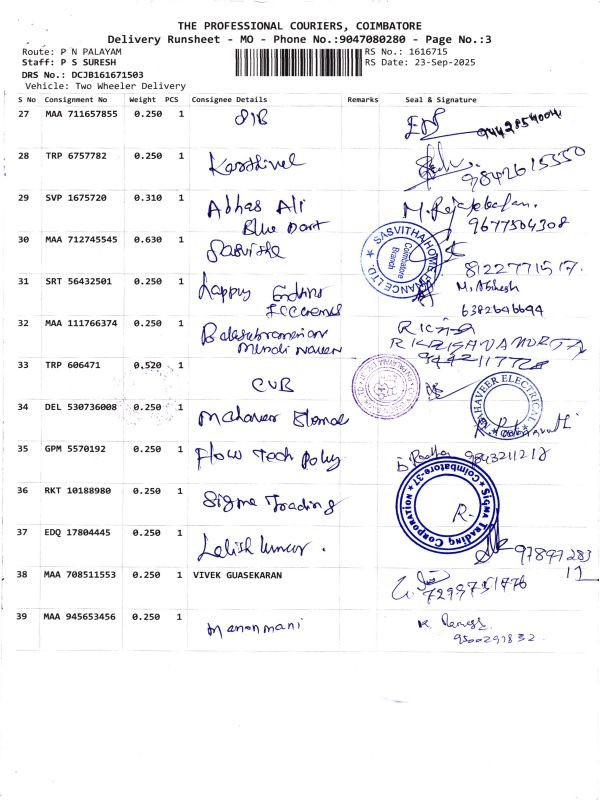 THE PROFESSIONAL COURIERS, COIMBATORE
Delivery Runsheet - MO - Phone No.:9047080280 - Page No.:3
Route: P N PALAYAM
Staff: P S SURESH
DRS No.: DCJB161671503
Vehicle: Two Wheeler Delivery
RS No.: 1616715
RS Date: 23-Sep-2025
S No Consignment No Weight PCS Consignee Details Remarks Seal & Signature
27 MAA 711657855 0.250 1
9442854004
28 TRP 6757782 0.250 1
9842615550
29 SVP 1675720 0.310 1 Abhas Ali
Blue Dart
9677504308
30 MAA 712745545 0.630 1
SASVITHA HOME FINANCE LTD.
Coimbatore
Branch
31 SRT 56432501 0.250 1 Happy
M. Abhesh
6382646694
32 MAA 111766374 0.250 1
33 TRP 606471 0.520 1 CUB
34 DEL 530736008 0.250 1
35 GPM 5570192 0.250 1 Flow Tech Poly
9843211212
36 RKT 10188980 0.250 1 Sigma Trading
SIGMA TRADING CORPORATION
Coimbatore-37
R-
37 EDQ 17804445 0.250 1 Lalish Kumar.
97897283
17
38 MAA 708511553 0.250 1 VIVEK GUASEKARAN
7299751476
39 MAA 945653456 0.250 1 Manonmani
9500291832.